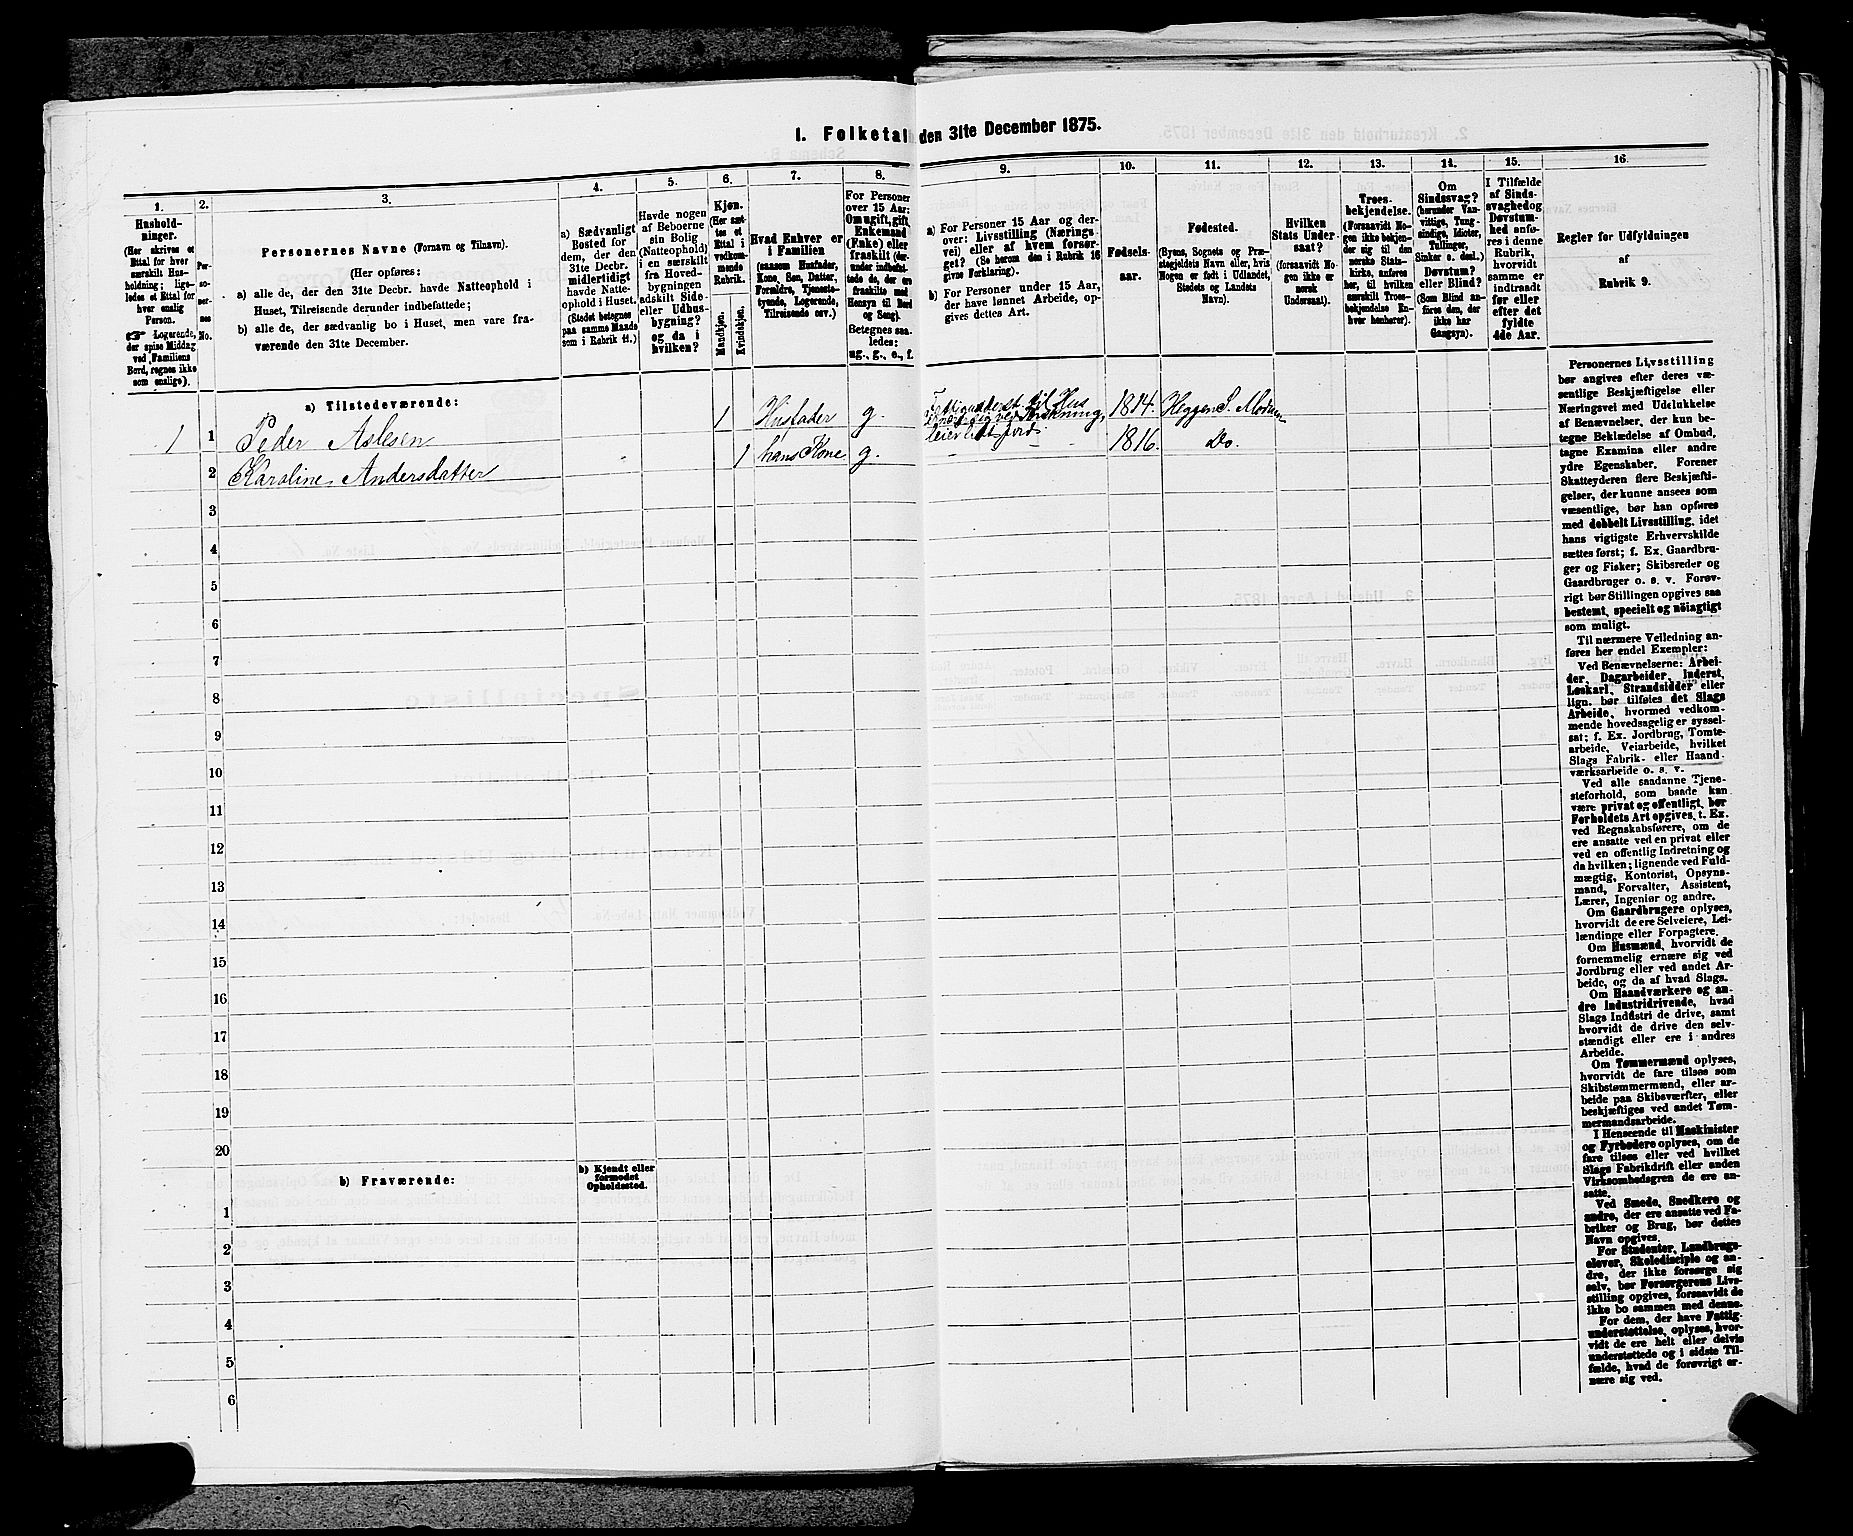 1. Folketal den 31te December 1875.
1. 2. 3. 4. 5. 6. 7. 8. 9. 10. 11. 12. 13. 14. 15. 16.
Hushold-
ninger.
(Her skrives et
Ettal for hver
særskilt Hus-
holdning; lige-
ledes et Ettal for
hver enslig
Person.
☞ Logerende,
der spise Middag
ved Familiens
Bord, regnes ikke
som enslige).
Per-
so-
ner-
nes
No.
Personernes Navne (Fornavn og Tilnavn).
(Her opføres:
a) alle de, der den 31te Decbr. havde Natteophold i
Huset, Tilreisende derunder indbefattede;
b) alle de, der sædvanlig bo i Huset, men vare fra-
værende den 31te December.
a) Sædvanligt
Bosted for
dem, der den
31te Decbr.
midlertidigt
havde Natte-
ophold i Huset.
(Stedet betegnes
paa samme Maade
som i Rubrik 11.)
Havde nogen
af Beboerne
sin Bolig
(Natteophold)
i en særskilt
fra Hoved-
bygningen
adskilt Side-
eller Udhus-
bygning?
og da i
hvilken?
Kjøn.
(Her sæt-
tes et
Ettal i
vedkom-
mende
Rubrik.
Mandkjøn.
Kvindekjøn.
Hvad Enhver er
i Familien
(saasom Husfader,
Kone, Søn, Datter,
Forældre, Tjeneste-
tyende, Logerende,
Tilreisende osv.)
For Personer
over 15 Aar:
Om ugift, gift
Enkemand
(Enke) eller
fraskilt (der-
under indbefat-
tede de, der ere
fraskilte med
Hensyn til Bord
og Seng).
Betegnes saa-
ledes:
ug., g., e., f.
a) For Personer 15 Aar og der-
over: Livsstilling (Nærings-
vei) eller af hvem forsør-
get? (Se herom den i Rubrik 16
givne Forklaring).
b) For Personer under 15 Aar,
der have lønnet Arbeide, op-
gives dettes Art.
Fødsels-
aar.
Fødested.
(Byens, Sognets og Præ-
stegjeldets Navn eller, hvis
Nogen er født i Udlandet,
Stedets og Landets
Navn).
Hvilken
Stats Under-
saat?
(forsaavidt No-
gen ikke er
norsk
Undersaat).
Troes-
bekjendelse.
(Forsaavidt No-
gen ikke bekjen-
der sig til den
norske Stats-
kirke, anføres
her, til hvilken
særskilt Troes-
bekjendelse En-
hver henhører).
Om
Sindssvag?
(herunder Van-
vittige, Tung-
sindige, Idioter,
Tullinger,
Sinker o. desl.)
Døvstum?
eller Blind?
(Som Blind an-
føres den, der
ikke har
Gangsyn).
I Tilfælde
af Sinds-
svaghed og
Døvstum-
hed anfø-
res i denne
Rubrik,
hvorvidt
samme er
indtraadt
før eller
efter det
fyldte
4de Aar.
Regler for Udfyldningen
af
Rubrik 9.
a) Tilstedeværende:
1 1 Peder Aslesen 1 Husfader g. 1814. Heggen S. Modum
2 Karoline Andersdatter 1 hans Kone g. 1816. Do.
3
4
5
6
7
8
9
10
11
12
13
14
15
16
17
18
19
20
b) Fraværende:
b) Kjendt eller
formodet
Opholdssted.
1
2
3
4
5
6
Personernes Livsstilling
bør angives efter deres væ-
sentlige Beskjæftigelse eller
Næringsvei med Udelukkelse
af Benævnelser, der kun be-
tegne Beklædelse af Ombud,
tagne Examina eller andre
ydre Egenskaber. Forener
Skatteyderen flere Beskjæfti-
gelser, der kunne ansees som
væsentlige, bør han opføres
med dobbelt Livsstilling, idet
hans vigtigste Erhvervskilde
sættes først; f. Ex. Gaardbru-
ger og Fisker; Skibsreder og
Gaardbruger o. s. v. Forøv-
rigt bør Stillingen opgives saa
bestemt, specielt og nöiagtigt
som muligt.
Til nærmere Veiledning an-
føres her endel Exempler:
Ved Benævnelserne: Arbei-
der, Dagarbeider, Inderst,
Løskarl, Strandsidder eller
lign. bør tilføies det Slags
Arbeide, hvormed vedkom-
mende hovedsagelig er syssel-
sat; f. Ex. Jordbrug, Tomte-
arbeide, Veiarbeide, hvilket
Slags Fabrik- eller Haand-
værksarbeide o. s. v.
Ved alle saadanne Tjene-
steforhold, som baade kan
være privat og offentligt, bør
Forholdets Art opgives, t. Ex.
ved Regnskabsførere, om de
ere ansatte ved en privat eller
ved en offentlig Indretning og
da hvilken; lignende ved Fuld-
mægtig, Kontorist, Opsyns-
mand, Forvalter, Assistent,
Lærer, Ingeniør og andre.
Om Gaardbrugere oplyses,
hvorvidt de ere Selveiere, Lei-
lændinge eller Forpagtere.
Om Husmænd, hvorvidt de
fornemmelig ernære sig ved
Jordbrug eller ved andet Ar-
beide, og da af hvad Slags.
Om Haandværkere og an-
dre Industridrivende, hvad
Slags Industri de drive, samt
hvorvidt de drive den selv-
stændigt eller ere i andres
Arbeide.
Om Tømmermænd oplyses,
hvorvidt de fare tilsøs som
Skibstømmermænd, eller ar-
beide paa Skibsværfter, eller
beskjæftiges ved andet Tøm-
mermandsarbeide.
I Henseende til Maskinister
og Fyrbødere oplyses, om de
fare tilsøs eller ved hvilket
Slags Fabrikdrift eller anden
Virksomhedsgren de ere an-
satte.
Ved Smede, Snedkere og
andre, der ere ansatte ved Fa-
briker og Brug, bør dettes
Navn opgives.
For Studenter, Landbrugs-
elever, Skoledisciple og an-
dre, der ikke forsørge sig
selv, bør Forsørgerens Livs-
stilling opgives, forsaavidt de
ikke bo sammen med denne.
For dem, der have Fattig-
understøttelse, oplyses, hvor-
vidt de ere helt eller delvis
understøttede og i sidste Til-
fælde, hvad de forøvrigt er-
nære sig ved.